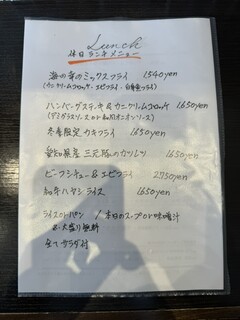 Lunch
休日ランチメニュー
海の幸のミックスフライ 1540yen
(カニクリームコロッケ・エビフライ・白身魚フライ)
ハンバーグステーキ & カニクリームコロッケ 1650yen
(デミグラスソース or 和風オニオンソース)
冬季限定 カキフライ 1650yen
愛知県産 三元豚のカツレツ 1650yen
ビーフシチュー & エビフライ 2750yen
和牛ハヤシライス 1650yen
ライス or パン / 本日のスープ or 味噌汁
大盛り無料
全てサラダ付